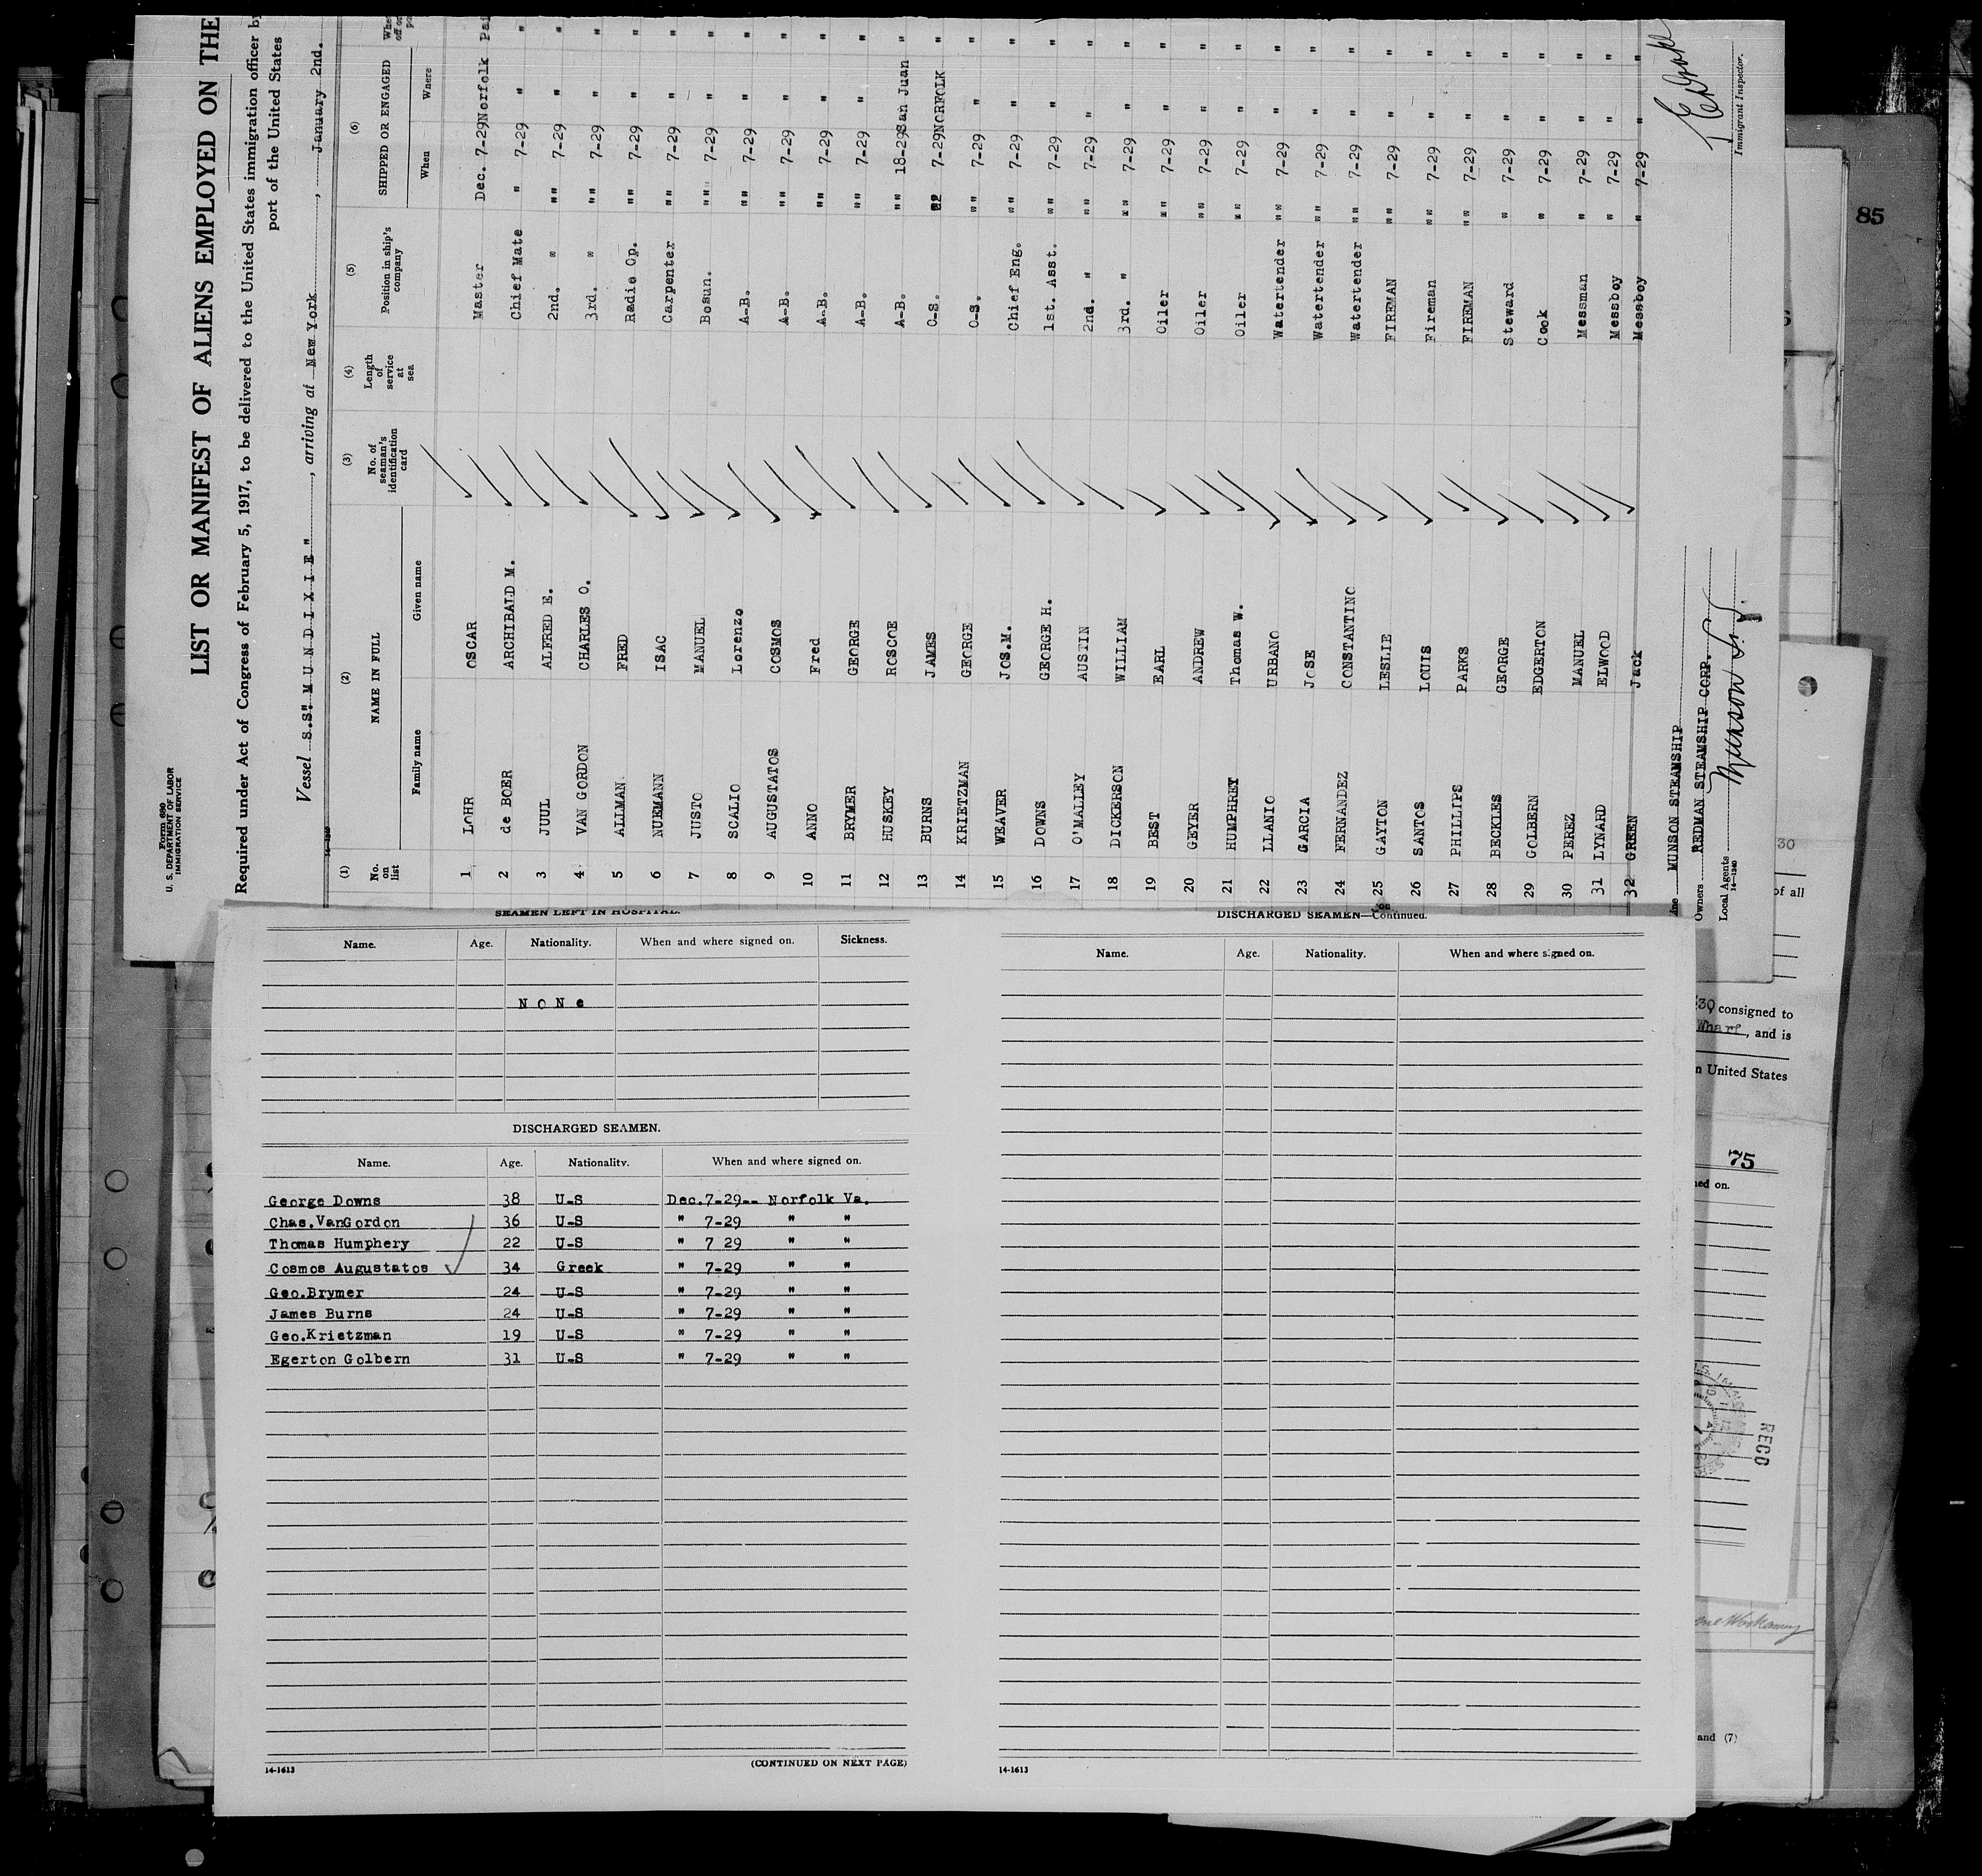 Form 680
U. S. DEPARTMENT OF LABOR
IMMIGRATION SERVICE
LIST OR MANIFEST OF ALIENS EMPLOYED ON THE
Required under Act of Congress of February 5, 1917, to be delivered to the United States immigration officer by
port of the United States
Vessel S.S." M U N D I X I E ", arriving at New York, January 2nd.
14-1240
(1) (2) (3) (4) (5) (6)
No. on list NAME IN FULL No. of seaman's identification card Length of service at sea Position in ship's company SHIPPED OR ENGAGED
Family name Given name When Where
1 LOHR OSCAR Master Dec. 7-29 Norfolk Pai
2 de BOER ARCHIBALD M. Chief Mate " 7-29 " "
3 JUUL ALFRED E. 2nd. " "" 7-29 " "
4 VAN GORDON CHARLES O. 3rd. " "" 7-29 " "
5 ALLMAN FRED Radio Op. "" 7-29 " "
6 NUEMANN ISAC Carpenter "" 7-29 " "
7 JUSTO MANUEL Bosun. "" 7-29 " "
8 SCALIO Lorenzo A-B. "" 7-29 " "
9 AUGUSTATOS COSMOS A-B. "" 7-29 " "
10 ANNO Fred A-B. "" 7-29 " "
11 BRYMER GEORGE A-B. "" 7-29 " "
12 HUSKEY ROSCOE A-B. "" 18-29 San Juan "
13 BURNS JAMES O-S. 7-29 NORFOLK "
14 KRIETZMAN GEORGE O-S. "" 7-29 " "
15 WEAVER JOS.M. Chief Eng. "" 7-29 " "
16 DOWNS GEORGE H. 1st. Asst. "" 7-29 " "
17 O'MALLEY AUSTIN 2nd. " "" 7-29 " "
18 DICKERSON WILLIAM 3rd. " "" 7-29 " "
19 BEST EARL Oiler "" 7-29 " "
20 GEYER ANDREW Oiler "" 7-29 " "
21 HUMPHREY Thomas W. Oiler "" 7-29 " "
22 LLANIO URBANO Watertender "" 7-29 " "
23 GARCIA JOSE Watertender "" 7-29 " "
24 FERNANDEZ CONSTANTINO Watertender "" 7-29 " "
25 GAYTON LESLIE FIREMAN "" 7-29 " "
26 SANTOS LOUIS Fireman "" 7-29 " "
27 PHILLIPS PARKS FIREMAN "" 7-29 " "
28 BECKLES GEORGE Steward " 7-29 " "
29 GOLBERN EDGERTON Cook " 7-29 " "
30 PEREZ MANUEL Messman " 7-29 " "
31 LYNARD ELWOOD Messboy " 7-29 " "
32 GREEN Jack Messboy " 7-29 " "
MUNSON STEAMSHIP
Owners REDMAN STEAMSHIP CORP.
Local Agents Munson S. S.
14-1240
Immigrant Inspector.
SEAMEN LEFT IN HOSPITAL.
Name. Age. Nationality. When and where signed on. Sickness.
N O N e
DISCHARGED SEAMEN.
Name. Age. Nationality. When and where signed on.
George Downs 38 U-S Dec.7-29-- Norfolk Va.
Chas.VanGordon 36 U-S " 7-29 " "
Thomas Humphery 22 U-S " 7 29 " "
Cosmos Augustatos 34 Greek " 7-29 " "
Geo.Brymer 24 U-S " 7-29 " "
James Burns 24 U-S " 7-29 " "
Geo.Krietzman 19 U-S " 7-29 " "
Egerton Golbern 31 U-S " 7-29 " "
14-1613
(CONTINUED ON NEXT PAGE)
DISCHARGED SEAMEN—Continued.
Name. Age. Nationality. When and where signed on.
14-1613
85
30
of all
30 consigned to
Wharf, and is
n United States
75
ned on.
RECD
and (7)